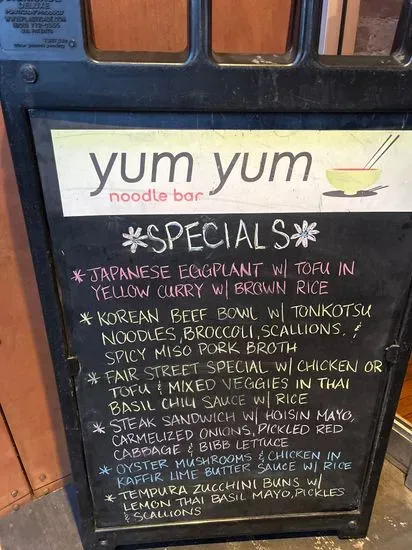 yum yum
noodle bar
*SPECIALS*
* JAPANESE EGGPLANT W/ TOFU IN
YELLOW CURRY W/ BROWN RICE
* KOREAN BEEF BOWL W/ TONKOTSU
NOODLES, BROCCOLI, SCALLIONS, &
SPICY MISO PORK BROTH
* FAIR STREET SPECIAL W/ CHICKEN OR
TOFU & MIXED VEGGIES IN THAI
BASIL CHILI SAUCE W/ RICE
* STEAK SANDWICH W/ HOISIN MAYO,
CARMELIZED ONIONS, PICKLED RED
CABBAGE & BIBB LETTUCE
* OYSTER MUSHROOMS & CHICKEN IN
KAFFIR LIME BUTTER SAUCE W/ RICE
* TEMPURA ZUCCHINI BUNS W/
LEMON THAI BASIL MAYO, PICKLES
& SCALLIONS